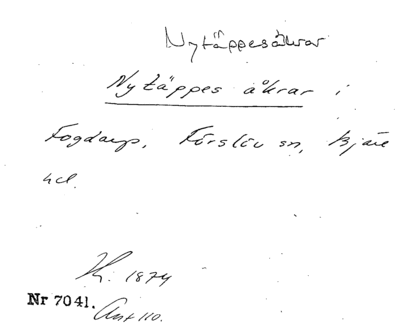 Nytäppesåkrar
Nytäppes åkrar i
Fogdarp, Förslöv sn, Bjäre
hd.
K. 1874
Nr 7041.
Ant 110.